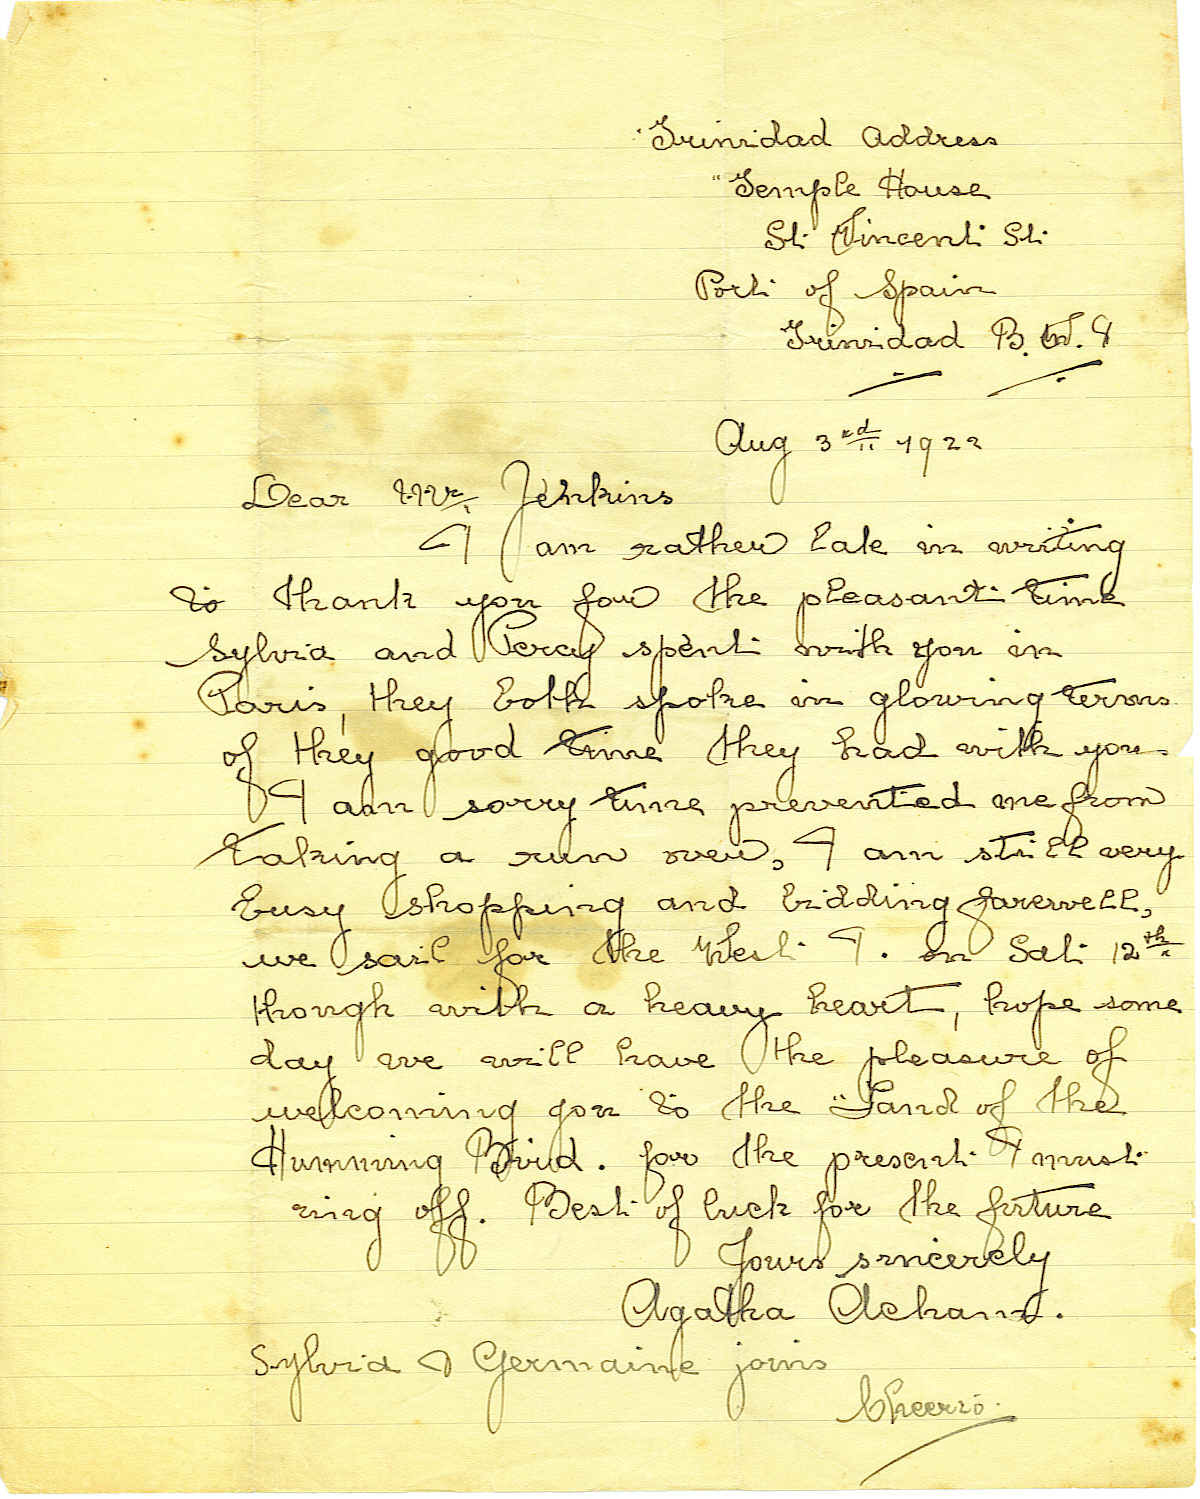 "Trinidad Address
"Temple House
St. Vincent St.
Port of Spain
Trinidad B. W. I
Aug 3rd 1922
Dear Mr. Jenkins
I am rather late in writing
to thank you for the pleasant time
Sylvia and Percy spent with you in
Paris, they both spoke in glowing terms
of they good time they had with you.
I am sorry time prevented me from
taking a run over, I am still very
busy shopping and bidding farewell,
we sail for the West I. on Sat 12th
though with a heavy heart, hope some
day we will have the pleasure of
welcoming you to the "Land of the
Humming Bird. for the present I must
ring off. Best of luck for the future
Yours sincerely
Agatha
Sylvia & Germaine joins
Cheerio.